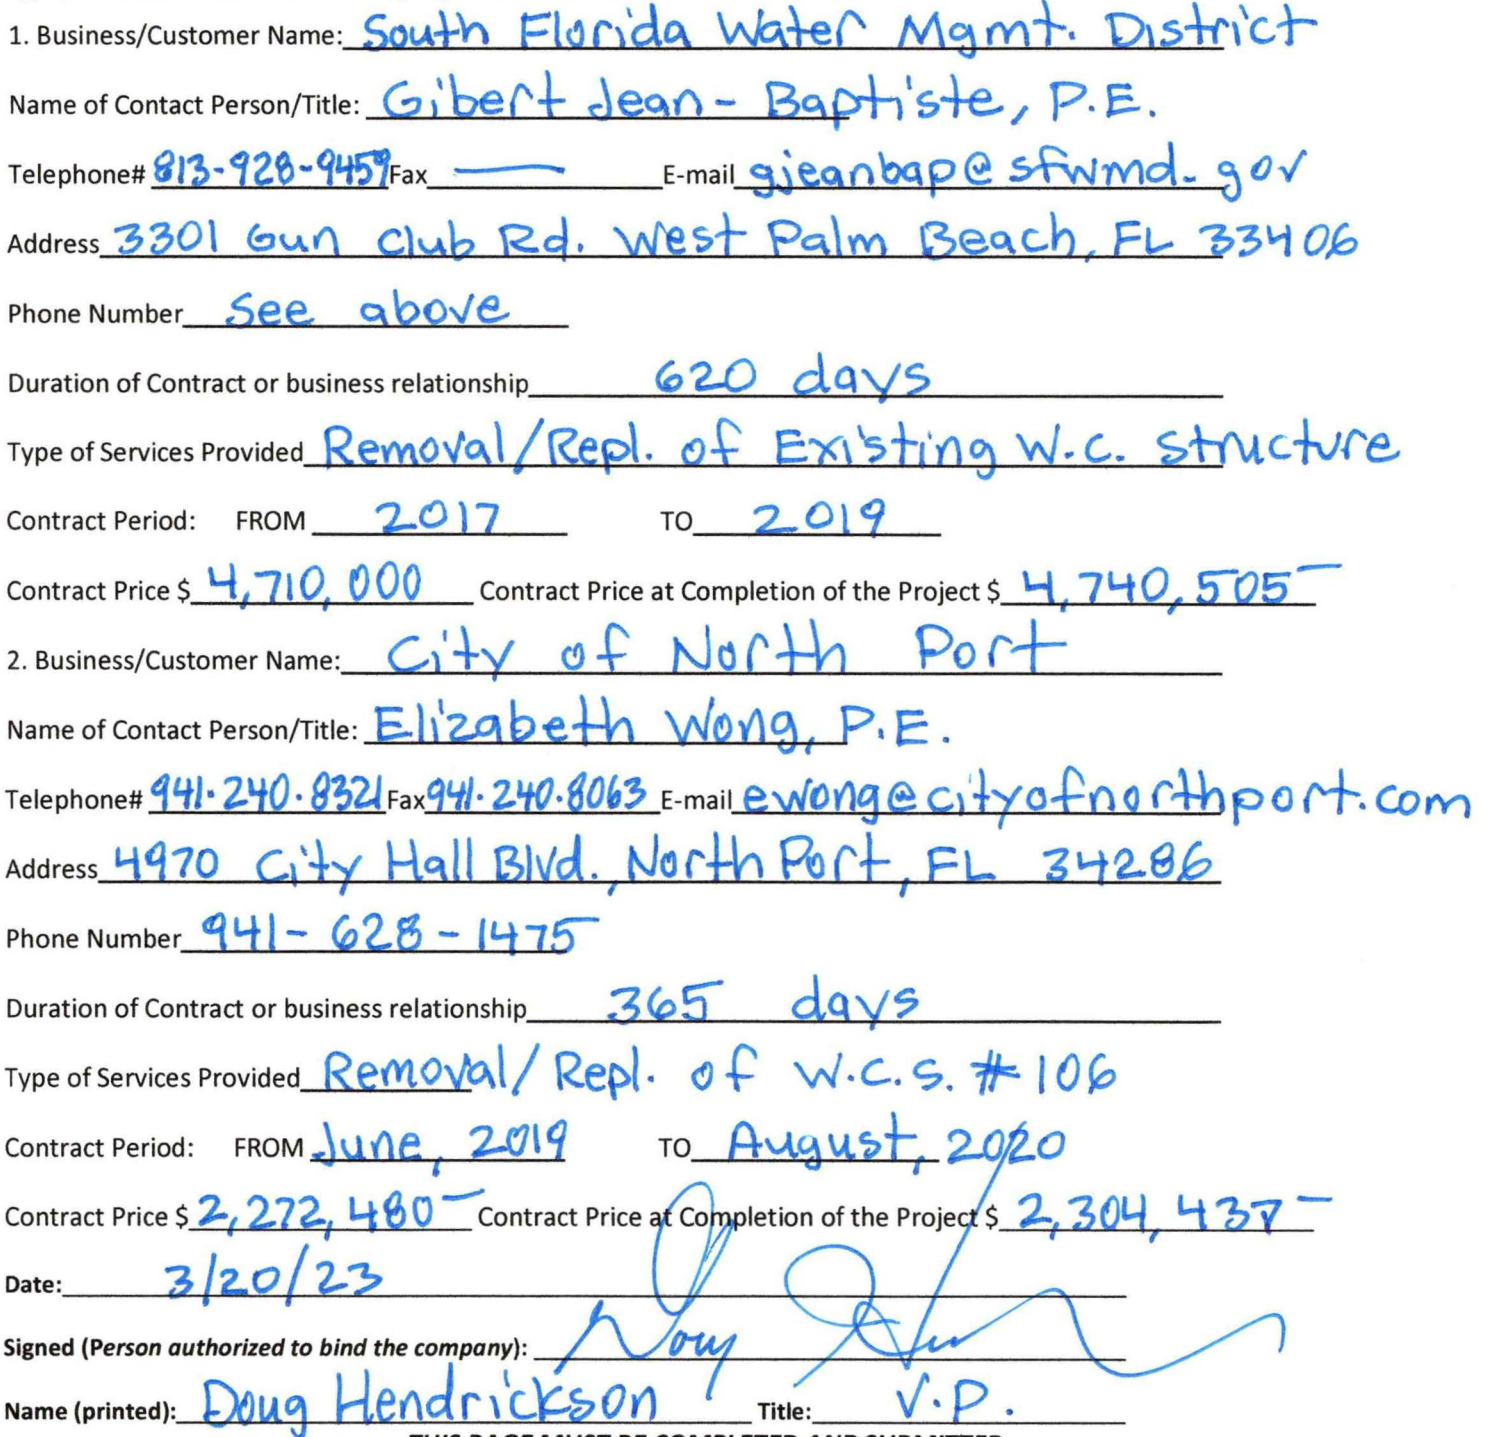 1. Business/Customer Name: South Florida Water Mgmt. District
Name of Contact Person/Title: Gibert Jean-Baptiste, P.E.
Telephone# 813-928-9459 Fax — E-mail gjeanbap@sfwmd.gov
Address 3301 Gun Club Rd. West Palm Beach, FL 33406
Phone Number see above
Duration of Contract or business relationship 620 days
Type of Services Provided Removal/Repl. of Existing W.C. Structure
Contract Period: FROM 2017 TO 2019
Contract Price $ 4,710,000 Contract Price at Completion of the Project $ 4,740,505—
2. Business/Customer Name: City of North Port
Name of Contact Person/Title: Elizabeth Wong, P.E.
Telephone# 941.240.8321 Fax 941.240.8063 E-mail ewong@cityofnorthport.com
Address 4970 City Hall Blvd., North Port, FL 34286
Phone Number 941-628-1475
Duration of Contract or business relationship 365 days
Type of Services Provided Removal/Repl. of W.C.S. #106
Contract Period: FROM June, 2019 TO August, 2020
Contract Price $ 2,272,480— Contract Price at Completion of the Project $ 2,304,437—
Date: 3/20/23
Signed (Person authorized to bind the company):
Name (printed): Doug Hendrickson Title: V.P.
THIS PAGE MUST BE COMPLETED AND SUBMITTED